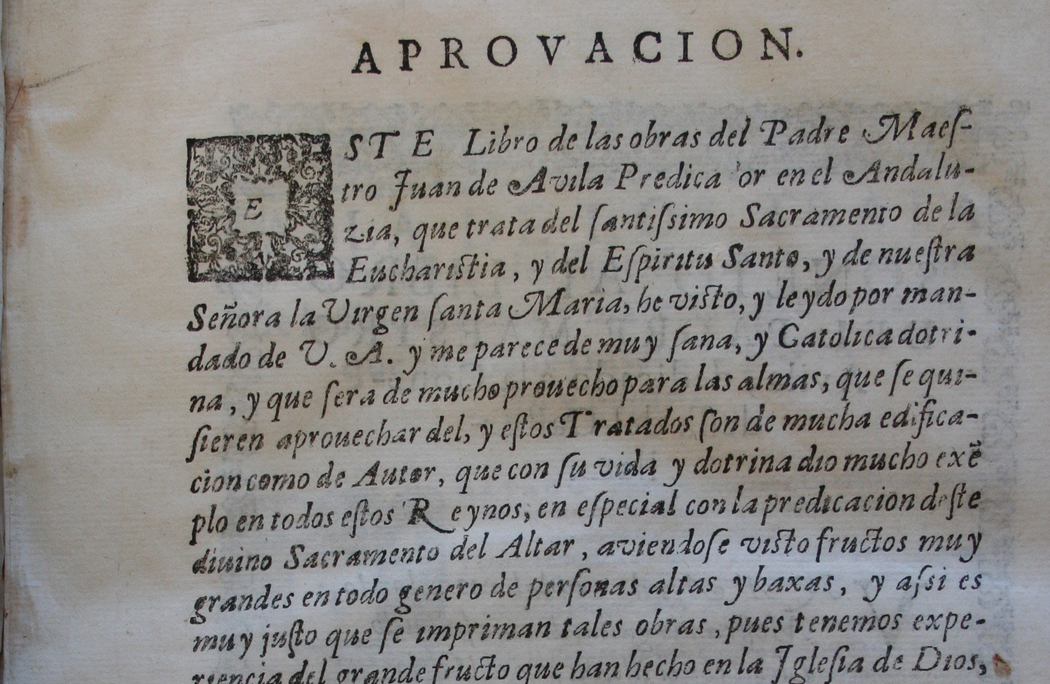 APROVACION.
ESTE Libro de las obras del Padre Maes-
tro Juan de Avila Predica or en el Andalu-
zia, que trata del santissimo Sacramento de la
Eucharistia, y del Espiritu Santo, y de nuestra
Señora la Virgen santa Maria, he visto, y leydo por man-
dado de V. A. y me parece de muy sana, y Catolica dotri-
na, y que sera de mucho prouecho para las almas, que se qui-
sieren aprouechar del, y estos Tratados son de mucha edifica-
cion como de Autor, que con su vida y dotrina dio mucho exẽ
plo en todos estos Reynos, en especial con la predicacion deste
diuino Sacramento del Altar, aviendose visto fructos muy
grandes en todo genero de personas altas y baxas, y assi es
muy justo que se impriman tales obras, pues tenemos expe-
riencia del grande fructo que han hecho en la Iglesia de Dios,